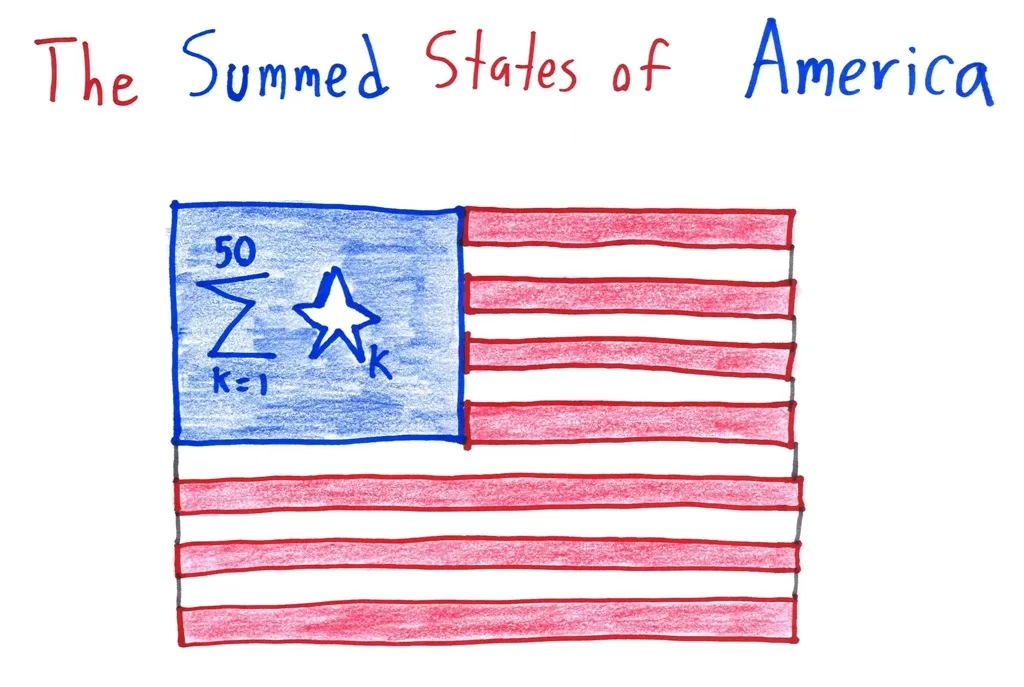 The Summed States of America
50
∑ ☆K
K=1